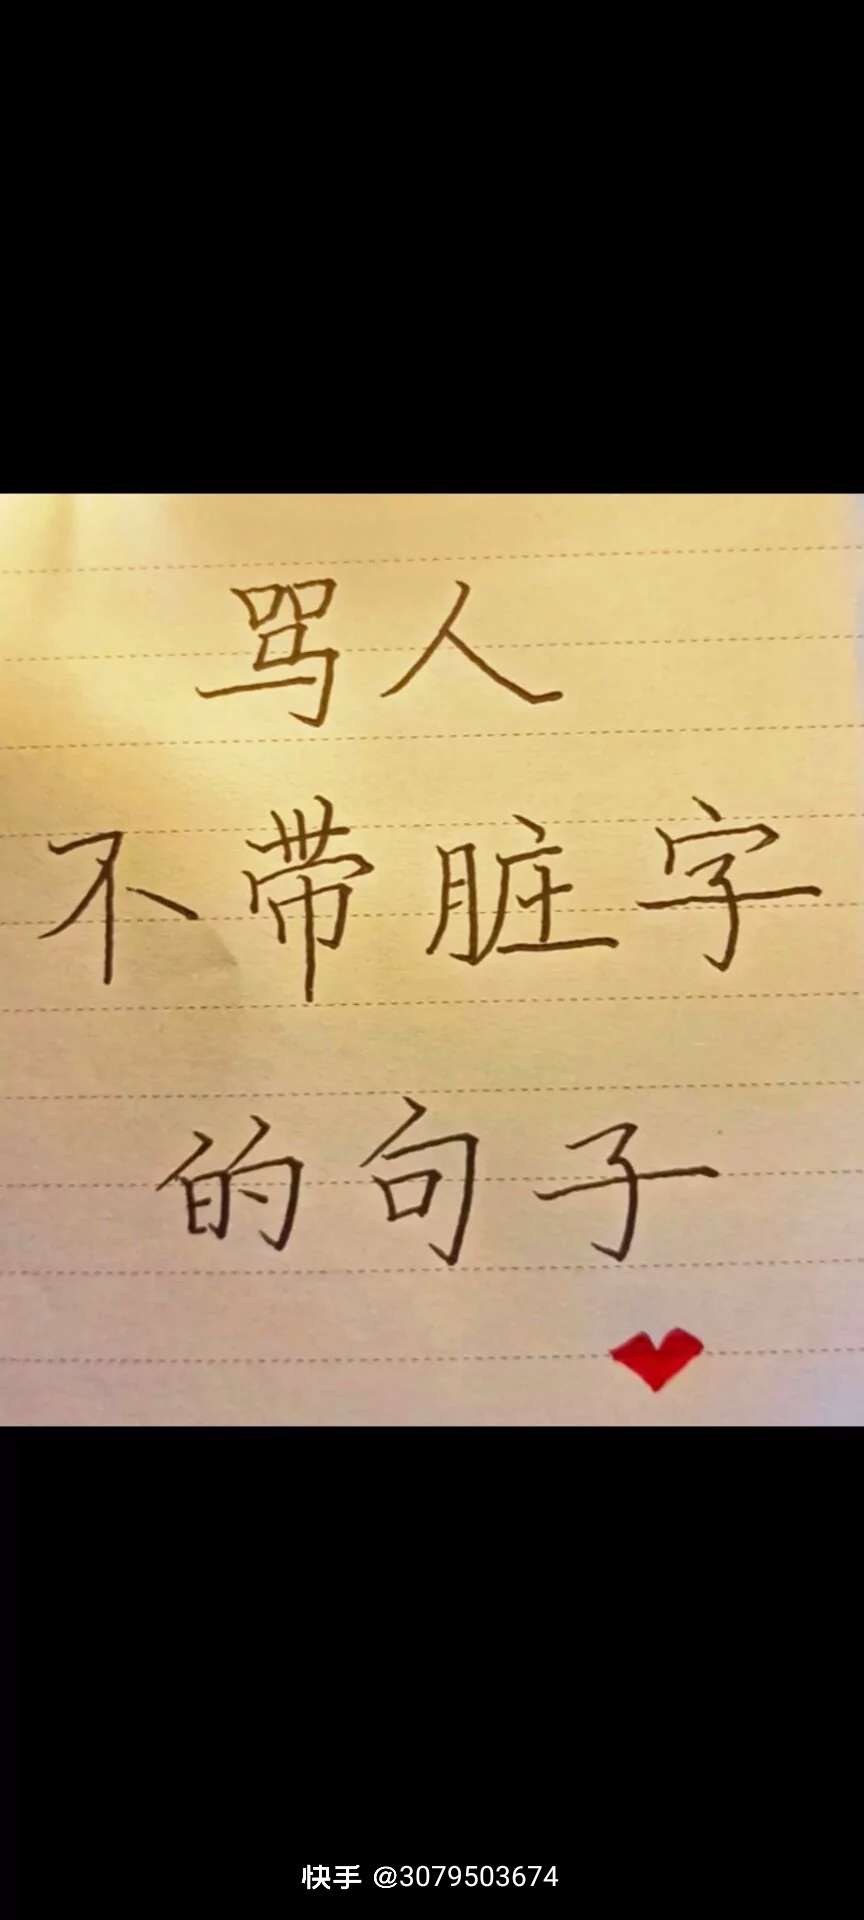 骂人
不带脏字
的句子
快手 @3079503674